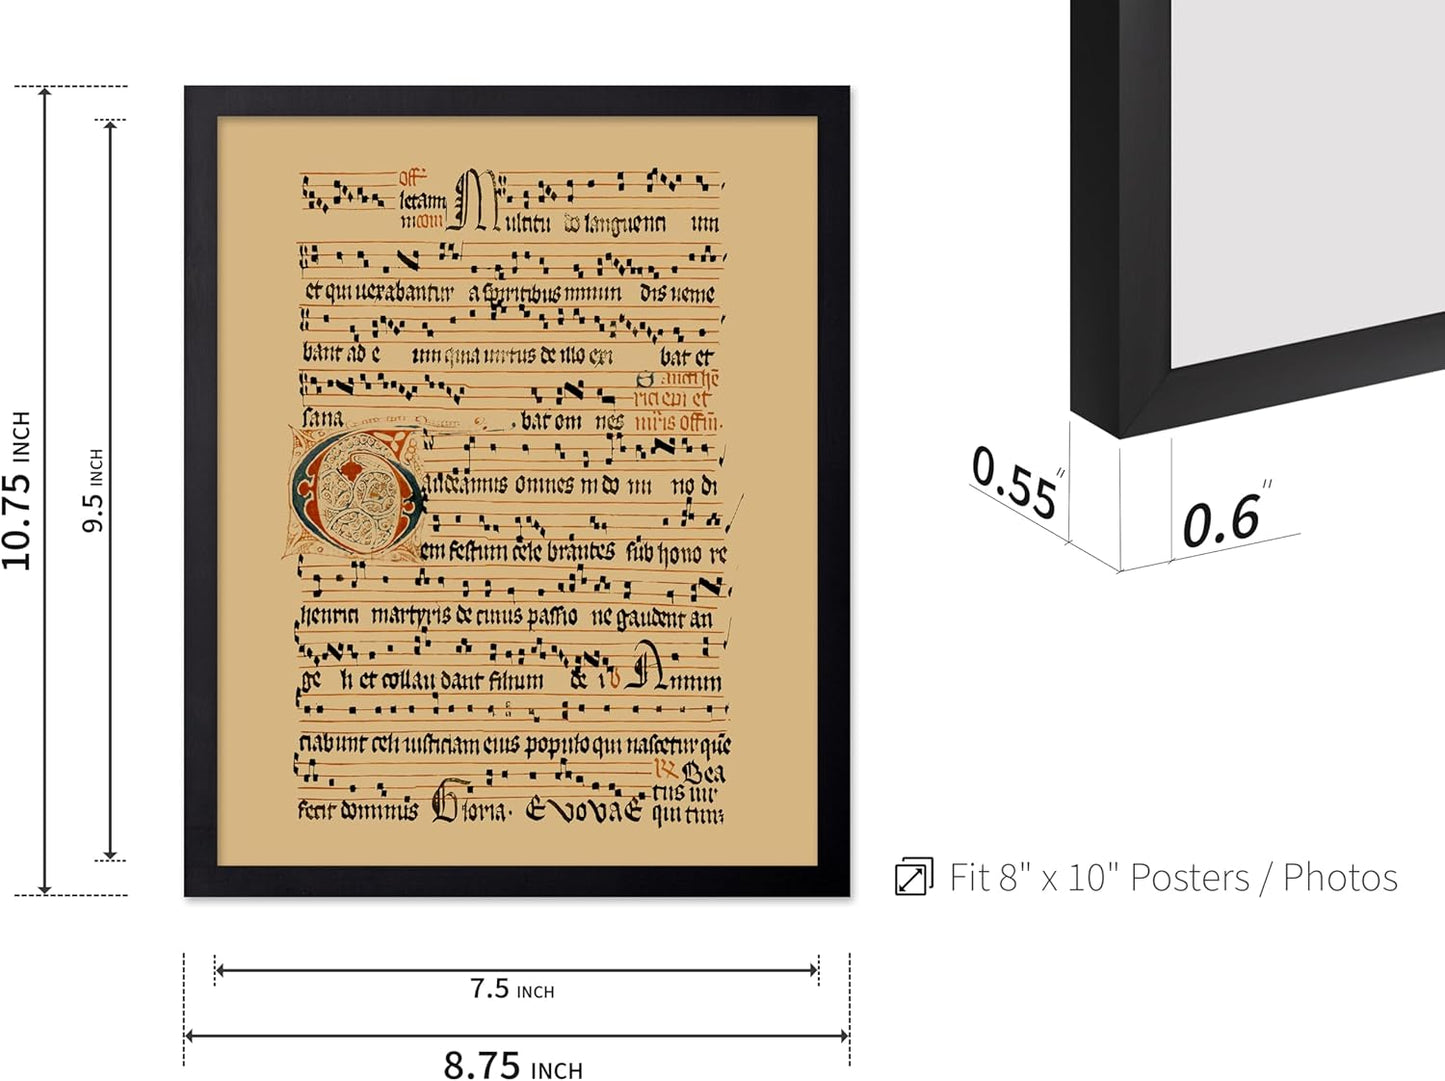 10.75 INCH
9.5 INCH
off
letam
m com
Multitu do languenti um
et qui vexabantur a spiritibus immun dis venie
bant ad e um quia virtus de illo exi bat et
Sancti hē
rici epi et
sana bat om nes
mr̄is offm̄.
Gaudeamus omnes in do mi no di
em festum cele brantes sub hono re
henrici martyris de cuius passio ne gaudent an
ge li et collau dant filium de i v Annun
ciabunt celi iusticiam eius populo qui nascetur quē
R Bea
tus vir
fecit dominus Gloria. EVOVAE qui tim;
7.5 INCH
8.75 INCH
0.55"
0.6"
Fit 8" x 10" Posters / Photos